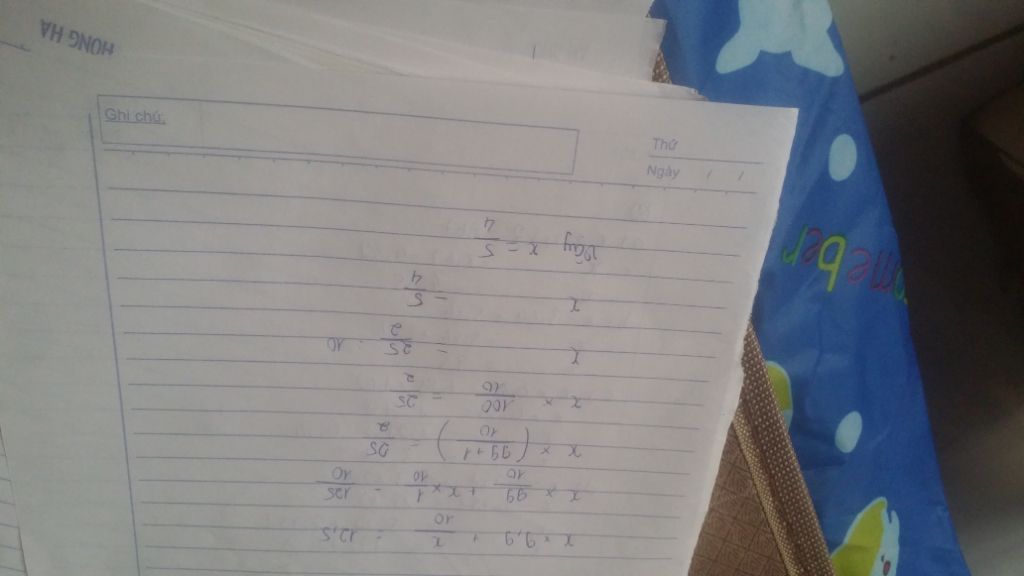 HONG HA
Ghi chú:
Thứ
Ngày / /
x × 9,9 + x/10 = 12,5
x × 99/10 + x × 1/10 = 125/10
x × (99+1/10) = 25/2
x × 100/10 = 25/2
x = 25/2 : 10
x = 5/4
Vậy x = 5/4
omeber